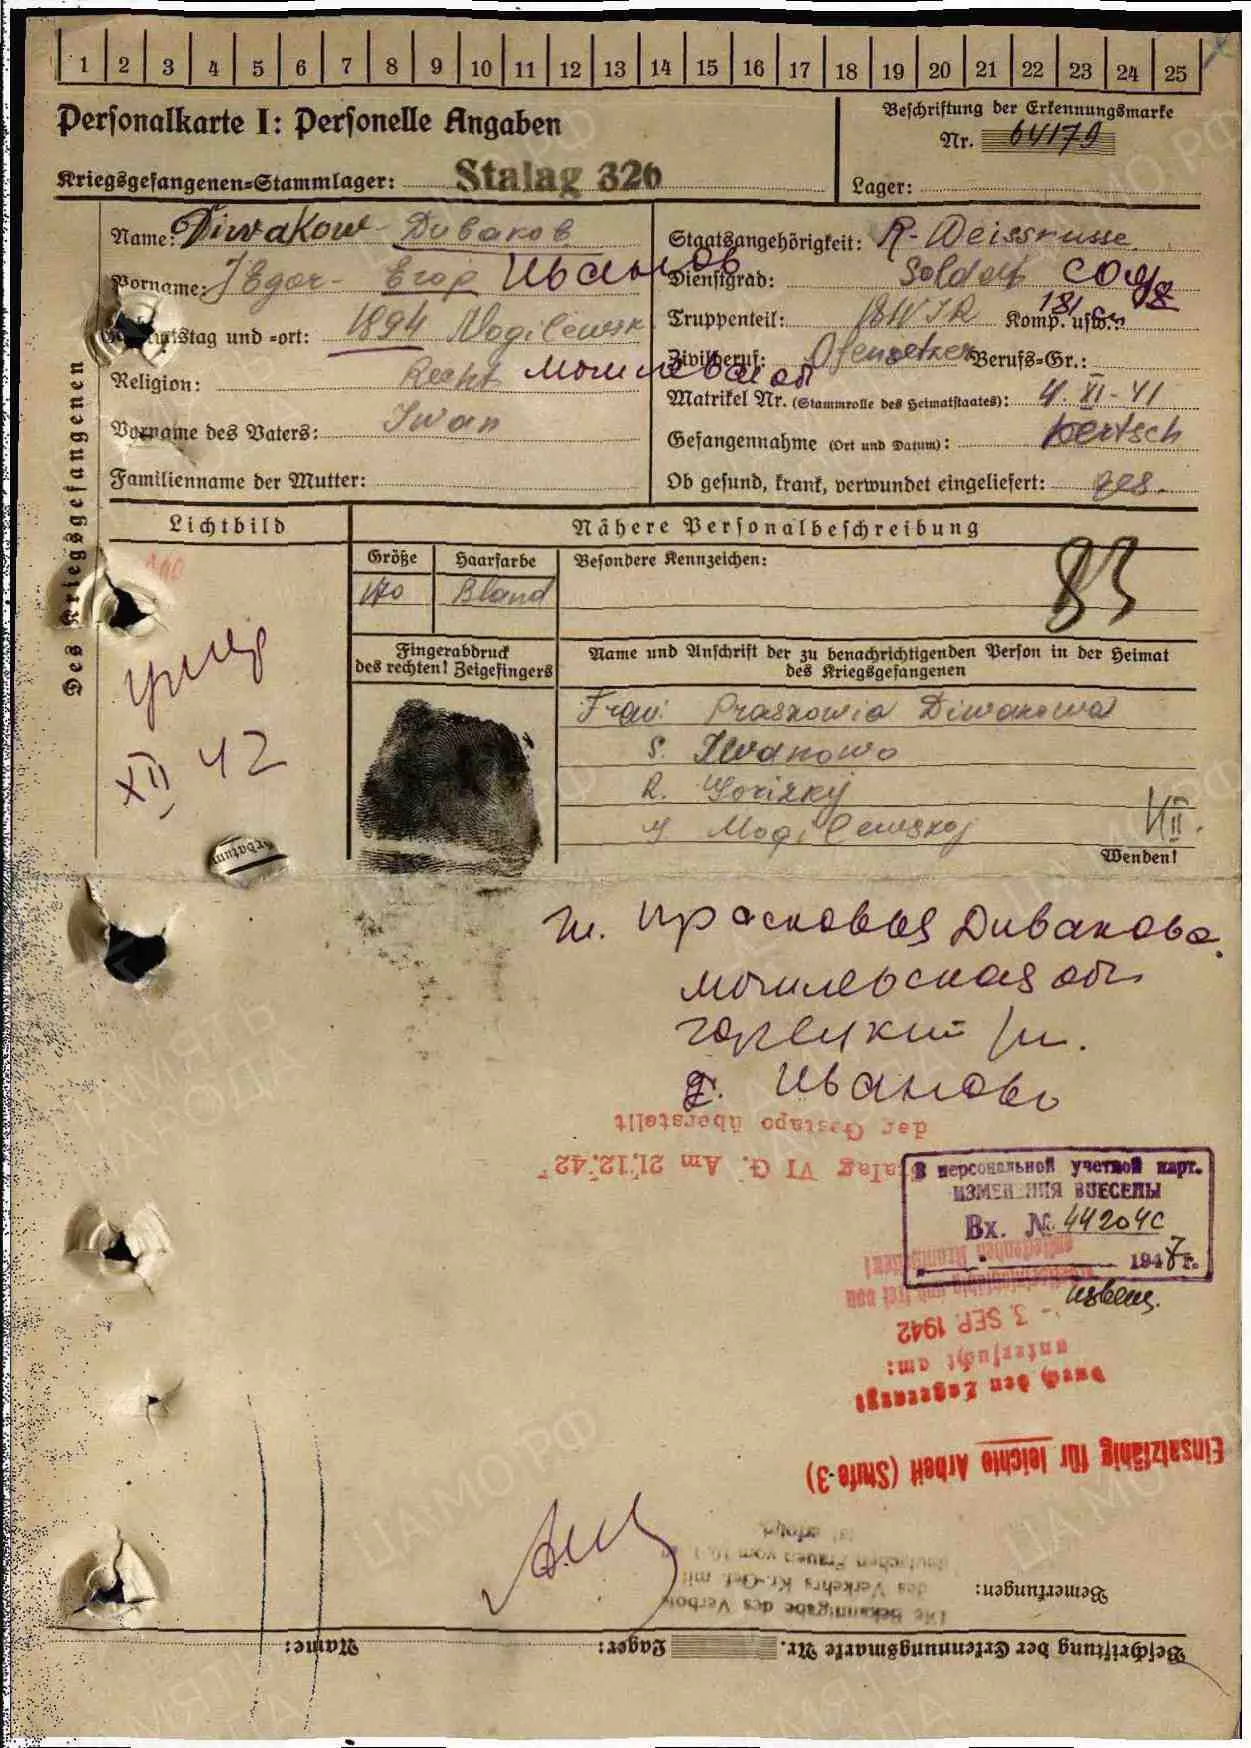 1 2 3 4 5 6 7 8 9 10 11 12 13 14 15 16 17 18 19 20 21 22 23 24 25
Personalkarte I: Personelle Angaben
Beschriftung der Erkennungsmarke
Nr. 64179
Kriegsgefangenen=Stammlager: Stalag 326
Lager:
Des Kriegsgefangenen
Name: Diwakow - Диваков
Vorname: JEgor - Егор Иванов
Geburtstag und =ort: 1894 Mogilewsk
Religion: Recht Могилевская об
Vorname des Vaters: Iwan
Familienname der Mutter:
Staatsangehörigkeit: R-Weissrusse
Dienstgrad: Soldat солд
Truppenteil: 181 I R Komp. usw.: 181
Zivilberuf: Ofensetzer Berufs=Gr.:
Matrikel Nr. (Stammrolle des Heimatstaates): 4. XI - 41
Gefangennahme (Ort und Datum): Kertsch
Ob gesund, krank, verwundet eingeliefert: ges.
Lichtbild
Nähere Personalbeschreibung
Größe
Haarfarbe
Besondere Kennzeichen:
170
Bland
83
умер
XII 42
Fingerabdruck
des rechten! Zeigefingers
Name und Anschrift der zu benachrichtigenden Person in der Heimat
des Kriegsgefangenen
Frau: Praskowia Diwakowa
S. Iwanowo
R. Gorizky
G Mogilewskoj
Wenden!
ж. Прасковья Дивакова
могилевская об
горецкий р-н.
д. Иваново
der Gestapo überstellt
Stalag VI G. Am 21.12.42
В персональной учетной карт.
ИЗМЕНЕНИЯ ВНЕСЕНЫ
Вх. № 44204с
1947г.
- 3. SEP. 1942
untersucht am:
Durch den Lagerarzt
Einsatzfähig für leichte Arbeit (Stufe-3)
ist erfolgt.
deutschen Frauen vom
des Verkehrs Kr.-Gef. mit
Die Bekanntgabe des Verbots
Bemerkungen:
Beschriftung der Erkennungsmarke Nr. Lager: Name:
ПАМЯТЬ НАРОДА
ЦАМО.РФ